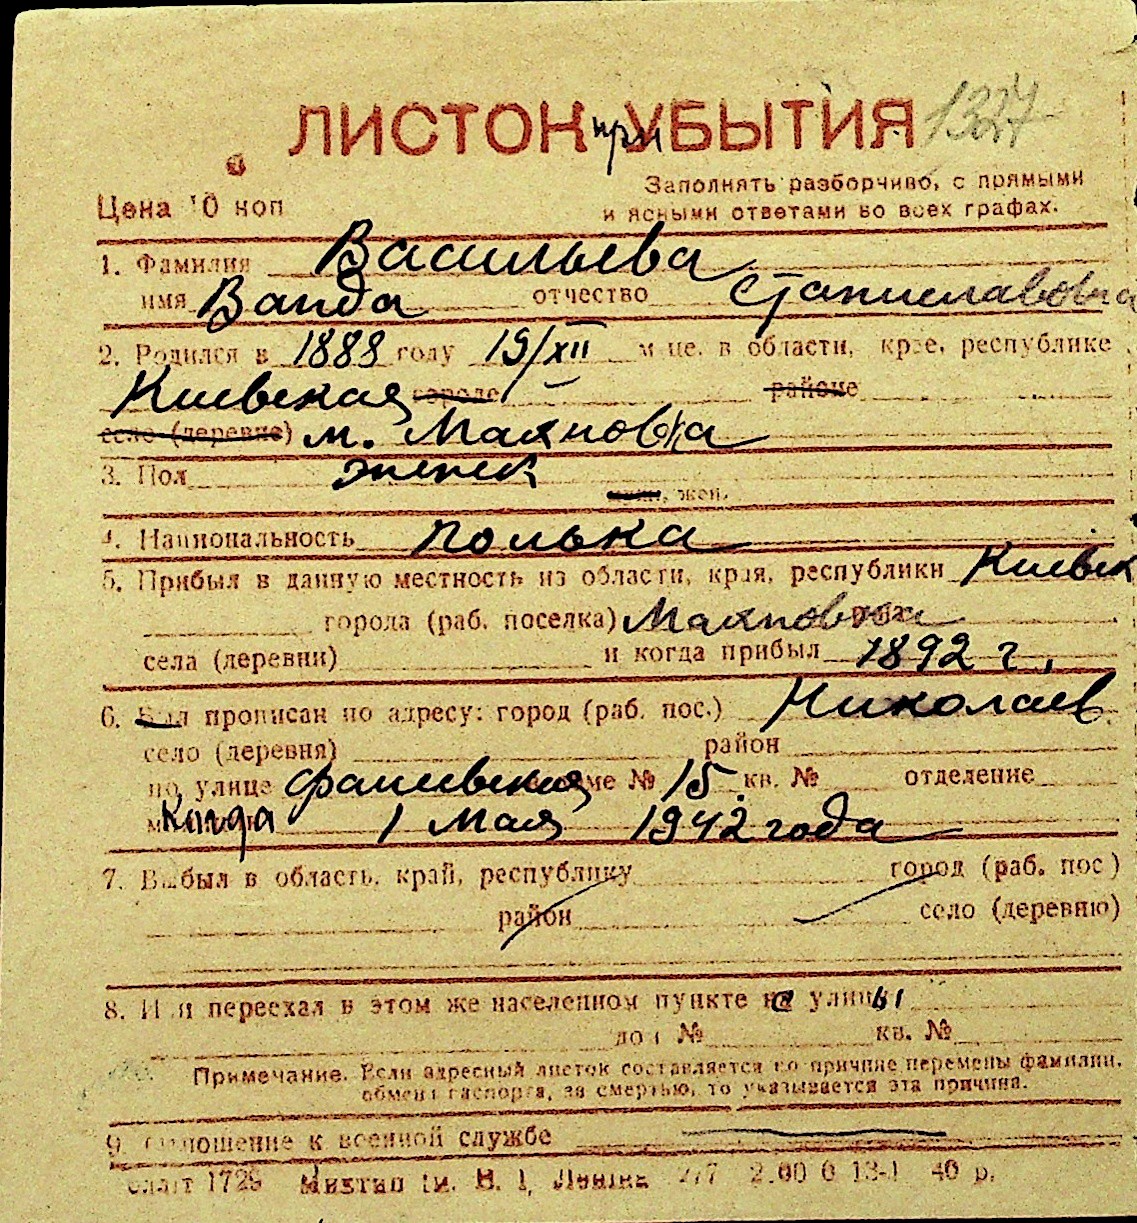 ЛИСТОК при УБЫТИЯ 1327
Цена 10 коп
Заполнять разборчиво, с прямыми
и ясными ответами во всех графах.
1. Фамилия Васильева
имя Ванда отчество Станиславовна
2. Родился в 1888 году 19/XII м-це. в области, крае, республике
Киевская городе районе
село (деревне) м. Махновка
3. Пол женск
муж, жен.
4. Национальность полька
5. Прибыл в данную местность из области, края, республики Киевск
города (раб. поселка) Махновка
села (деревни) и когда прибыл 1892 г.
6. Был прописан по адресу: город (раб. пос.) Николаев
село (деревня) район
по улице доме № 15 кв. № отделение
Когда 1 Мая 1942 года
7. Выбыл в область, край, республику город (раб. пос)
район село (деревню)
8. Или переехал в этом же населенном пункте с улицы
дом № кв. №
Примечание. Если адресный листок составляется по причине перемены фамилии,
обмена паспорта, за смертью, то указывается эта причина.
9. Отношение к военной службе
1729 им. В. І. Леніна 40 р.